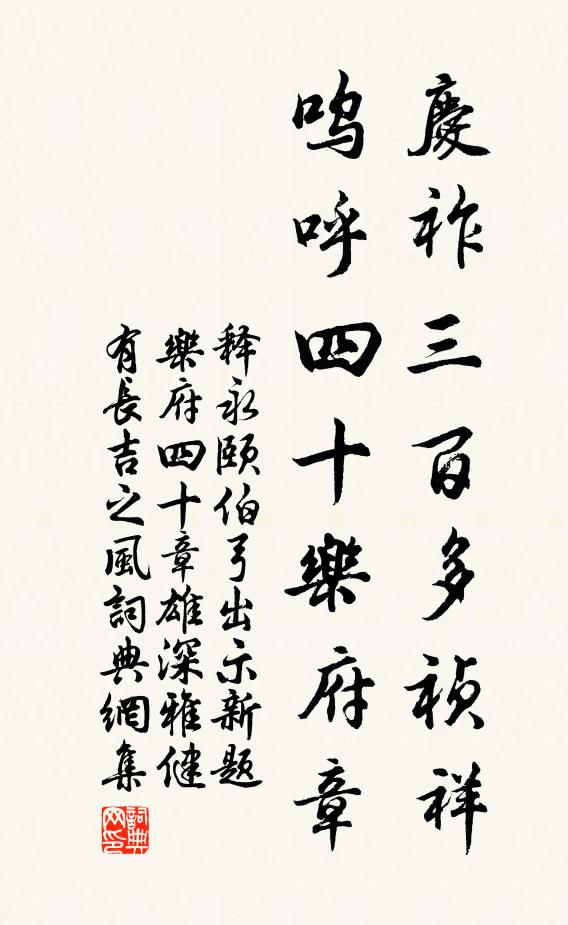 慶祚三百多禎祥
嗚呼四十樂府章
释永颐伯弓出示新题
樂府四十章雄深雅健
有長吉之風詞典網集
詞典网印